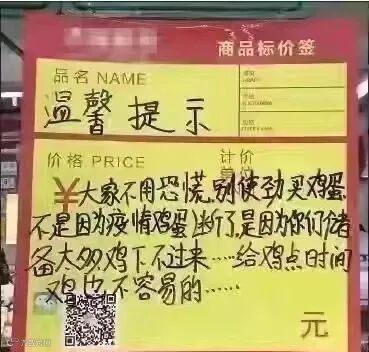 商品标价签
品名 NAME
温馨提示
价格 PRICE
计价
单位
¥大家不用恐慌,别使劲买鸡蛋,
不是因为疫情鸡蛋断了,是因为你们储
备太多,鸡下不过来……给鸡点时间,
鸡也不容易的……
元